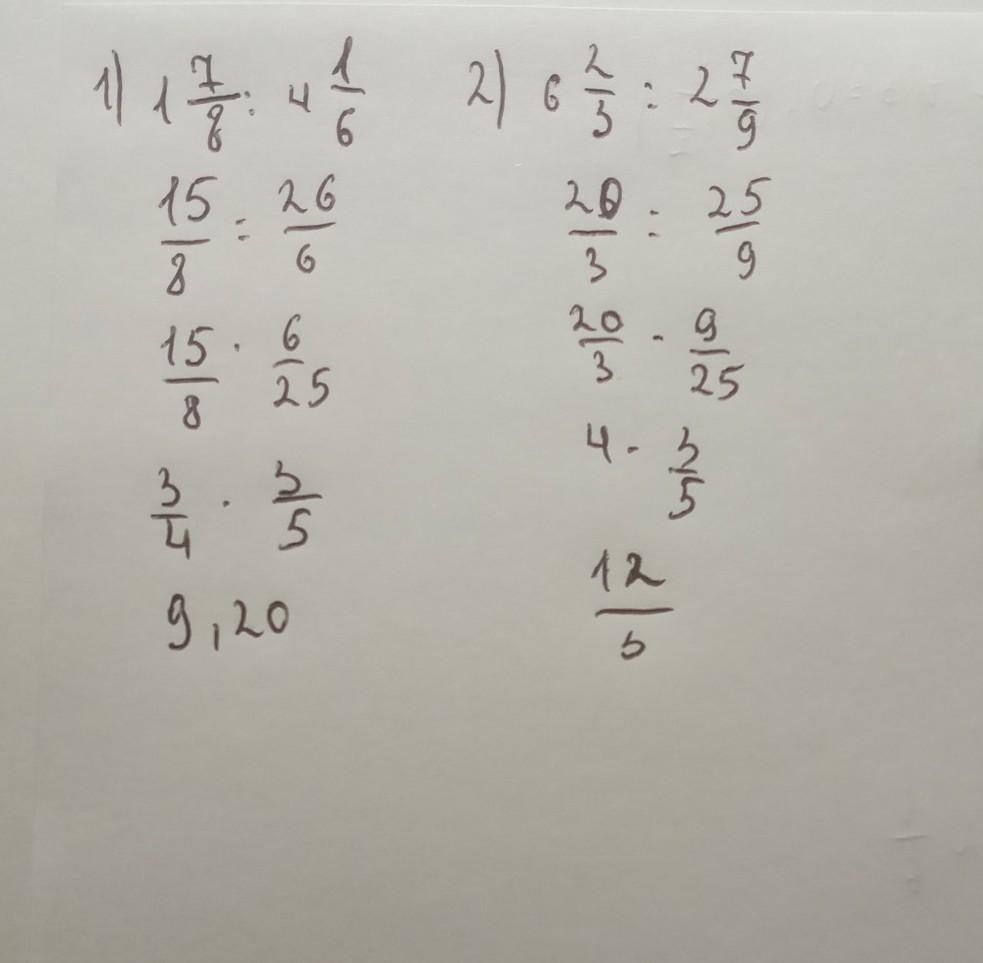 1) 1 7/8 : 4 1/6
15/8 : 26/6
15/8 · 6/25
3/4 · 3/5
9,20
2) 6 2/3 : 2 7/9
20/3 : 25/9
20/3 · 9/25
4 · 3/5
12/5